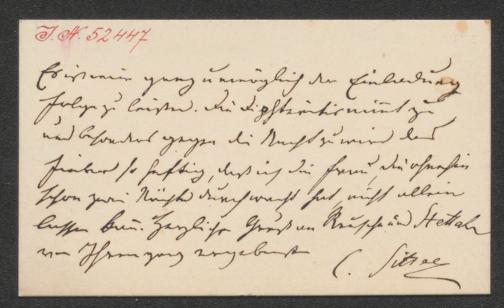 I. N. 52447
Es ist mir ganz unmöglich der Einladung
Folge zu leisten. Die Diphteritis nimmt zu
und besonders gegen die Nacht zu wird das
Fieber so heftig, daß ich die Frau, die ohnehin
schon zwei Nächte durchwacht hat, nicht allein
lassen kann. Herzliche Grüße an und
von Ihrem ganz ergebenen
C. Sitte